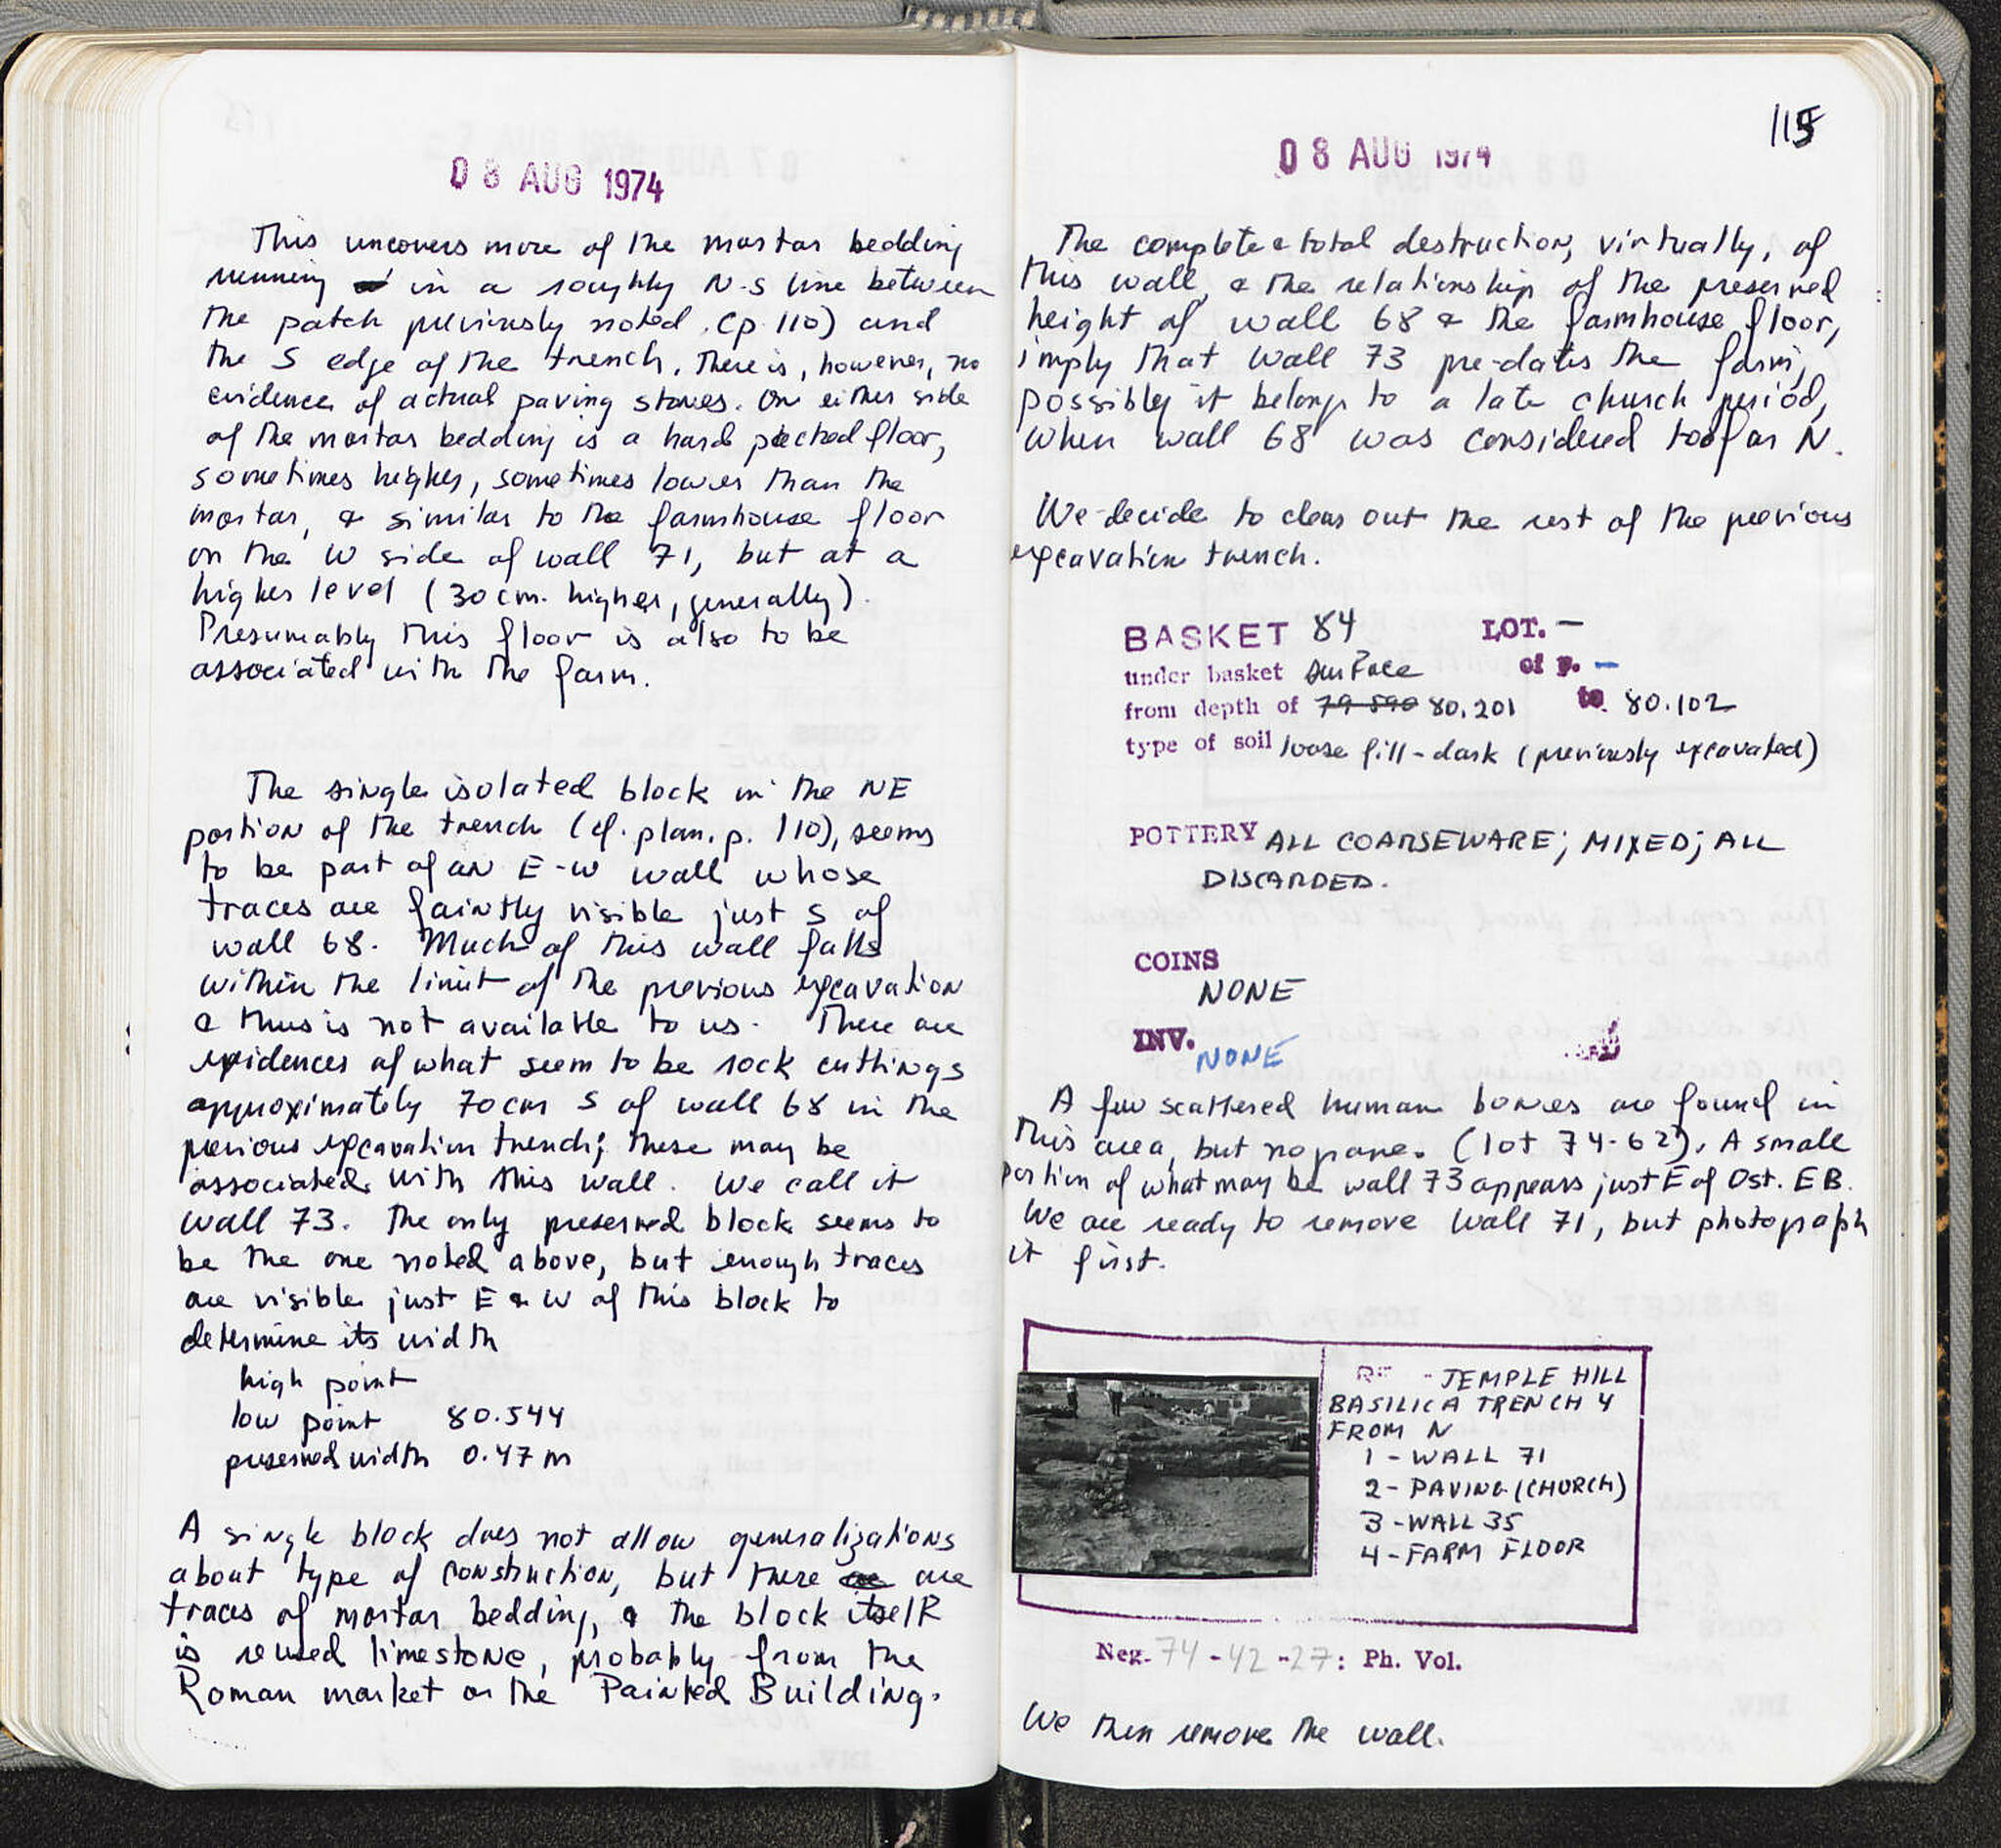 08 AUG 1974
This uncovers more of the mortar bedding
running in a roughly N-S line between
the patch previously noted (p. 110) and
the S edge of the trench. There is, however, no
evidence of actual paving stones. On either side
of the mortar bedding is a hard packed floor,
sometimes higher, sometimes lower than the
mortar, & similar to the farmhouse floor
on the W side of wall 71, but at a
higher level (30 cm. higher, generally).
Presumably this floor is also to be
associated with the farm.
The single isolated block in the NE
portion of the trench (cf. plan, p. 110), seems
to be part of an E-W wall whose
traces are faintly visible just S of
wall 68. Much of this wall falls
within the limit of the previous excavation
& thus is not available to us. There are
evidences of what seem to be rock cuttings
approximately 70 cm S of wall 68 in the
previous excavation trench; these may be
associated with this wall. We call it
wall 73. The only preserved block seems to
be the one noted above, but enough traces
are visible just E & W of this block to
determine its width
high point
low point 80.544
preserved width 0.47 m
A single block does not allow generalizations
about type of construction, but there are
traces of mortar bedding, & the block itself
is reused limestone, probably from the
Roman market or the Painted Building.
115
08 AUG 1974
The complete & total destruction, virtually, of
this wall, & the relationship of the preserved
height of wall 68 & the farmhouse floor,
imply that wall 73 pre-dates the farm;
possibly it belongs to a late church period,
when wall 68 was considered too far N.
We decide to clear out the rest of the previous
excavation trench.
BASKET 84 LOT. —
under basket surface of p. —
from depth of 79.890 80.201 to 80.102
type of soil loose fill - dark (previously excavated)
POTTERY ALL COARSEWARE; MIXED; ALL
DISCARDED.
COINS
NONE
INV. NONE
A few scattered human bones are found in
this area, but no grave. (lot 74-62). A small
portion of what may be wall 73 appears just E of Ost. EB.
We are ready to remove wall 71, but photograph
it first.
TEMPLE HILL
BASILICA TRENCH 4
FROM N
1 - WALL 71
2 - PAVING (CHURCH)
3 - WALL 35
4 - FARM FLOOR
Neg. 74-42-27: Ph. Vol.
We then remove the wall.